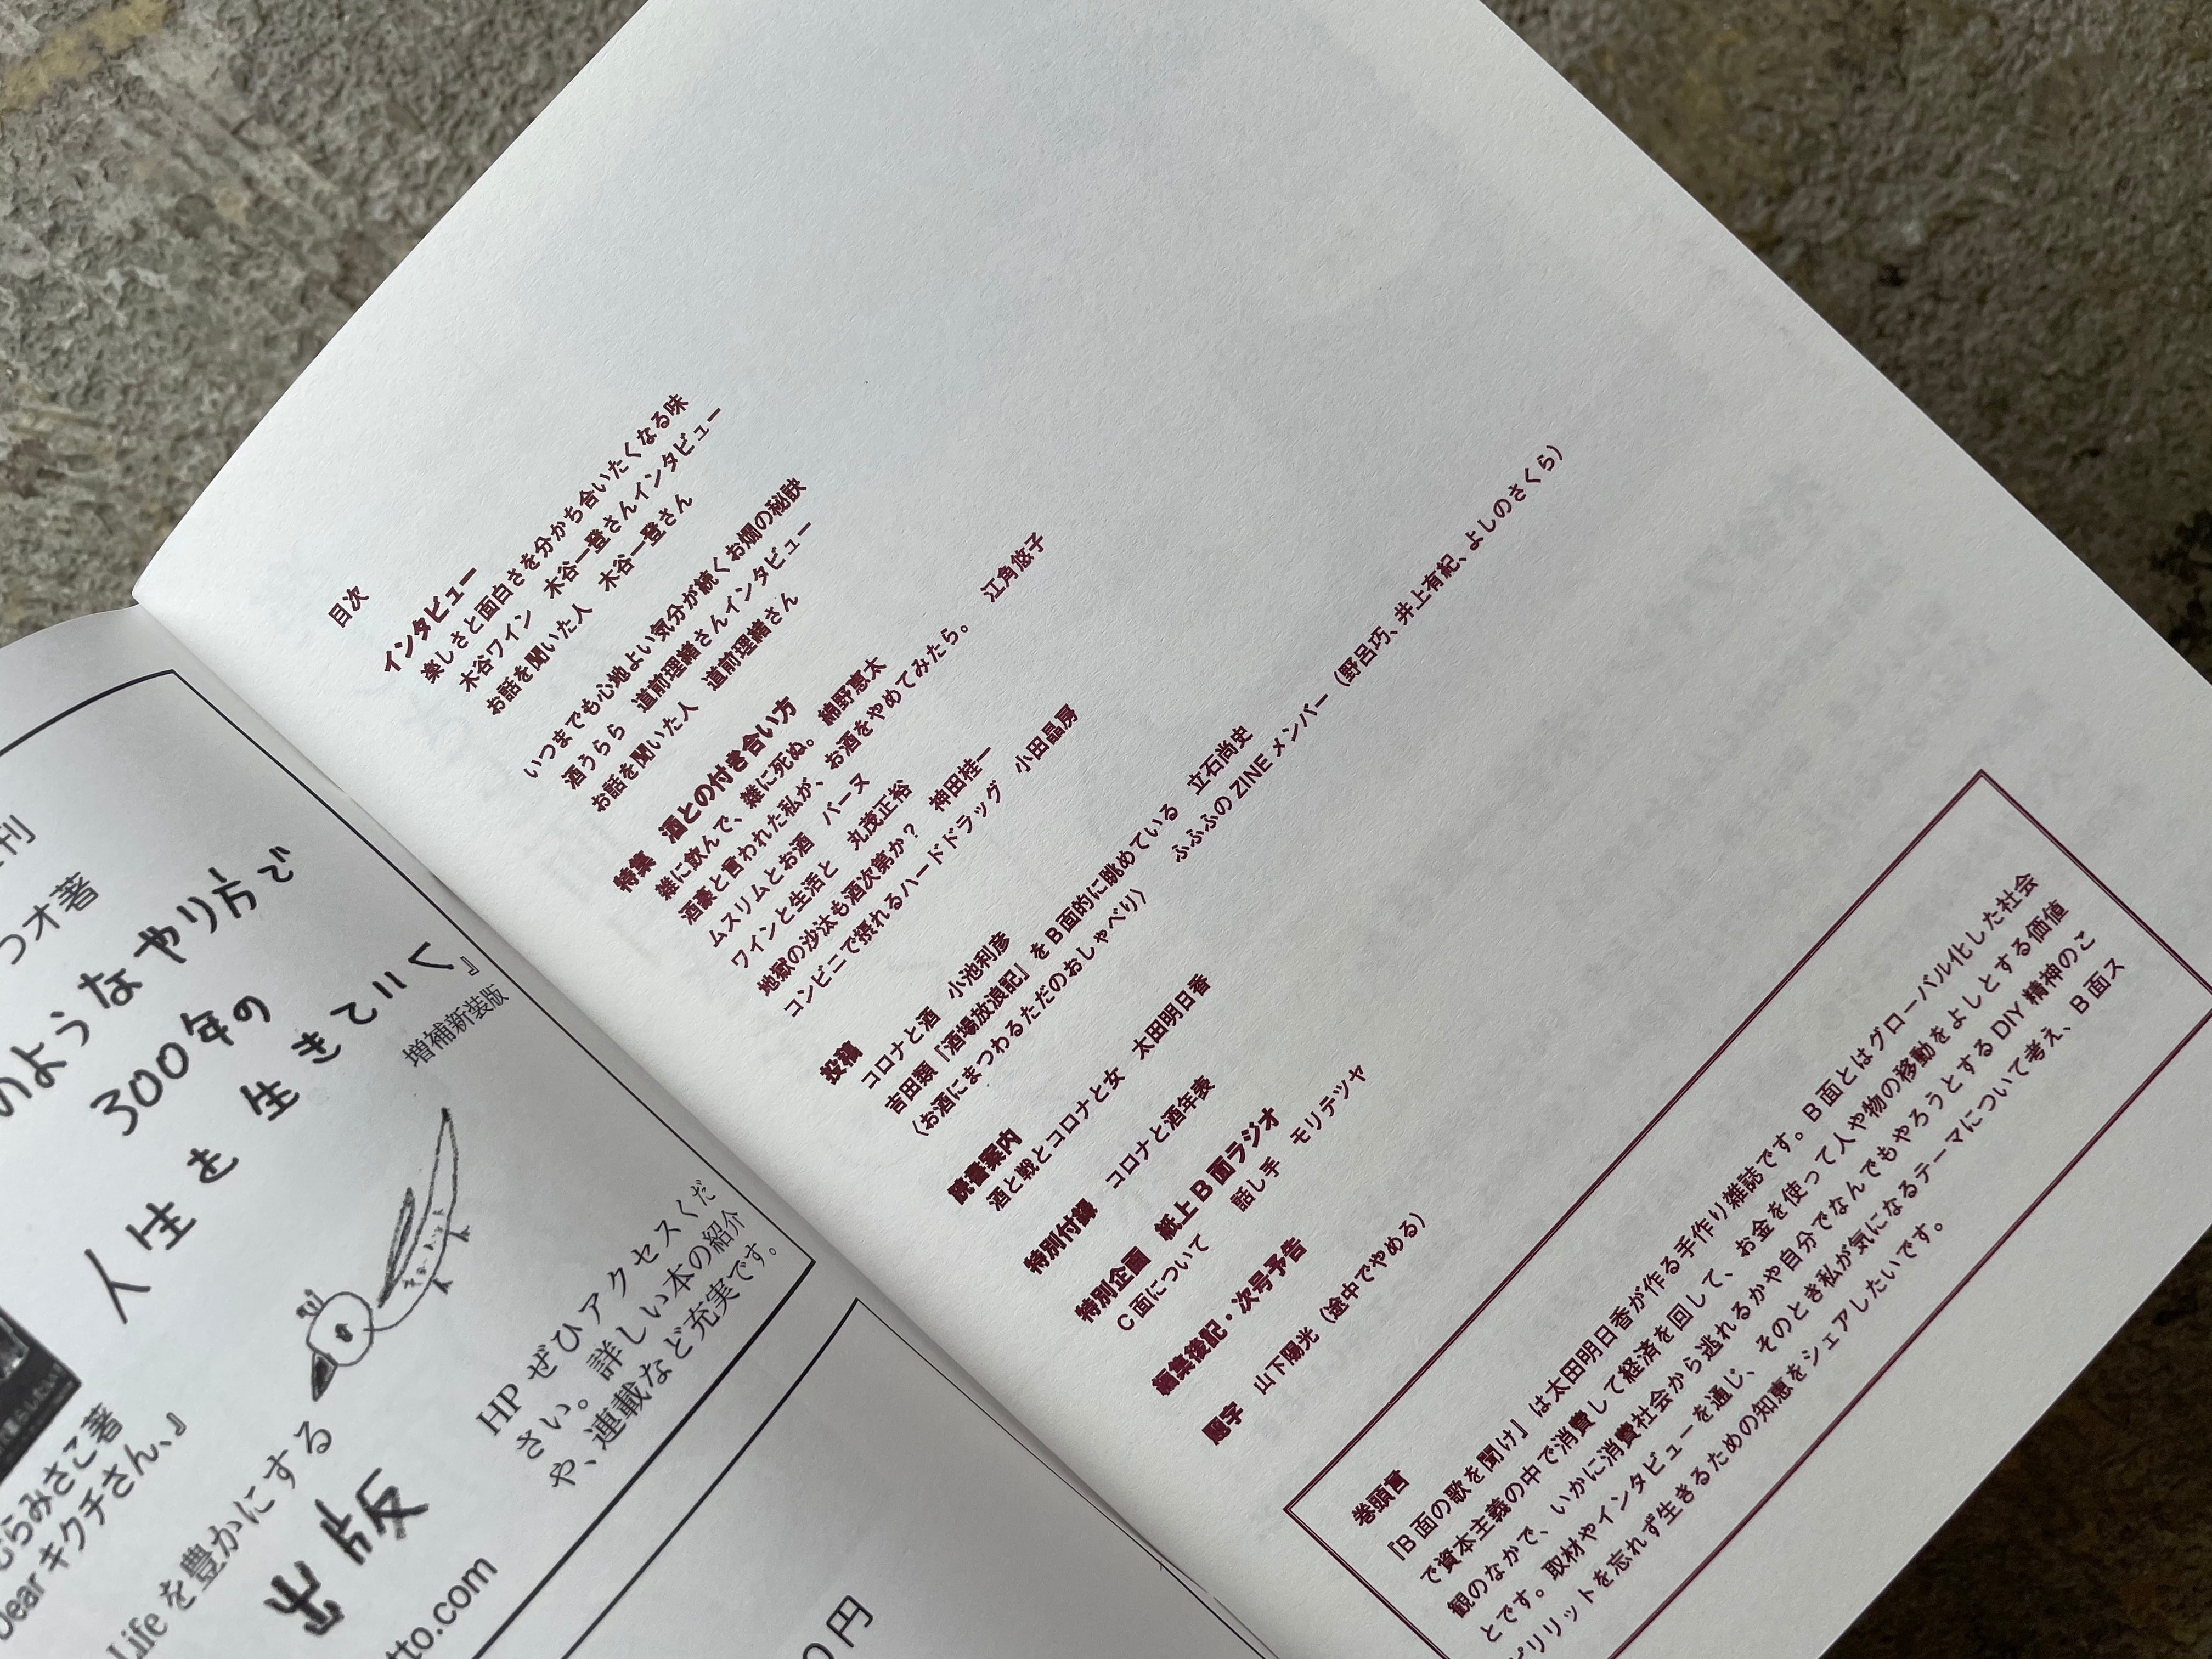 目次
インタビュー
楽しさと面白さを分かち合いたくなる味
木谷ワイン 木谷一登さんインタビュー
お話を聞いた人 木谷一登さん
いつまでも心地よい気分が続くお燗の秘訣
酒うらら 道前理緒さんインタビュー
お話を聞いた人 道前理緒さん
特集 酒との付き合い方
雑に飲んで、雑に死ぬ。 綿野恵太
酒豪と言われた私が、お酒をやめてみたら。 江角悠子
ムスリムとお酒 バーヌ
ワインと生活と 丸茂正裕
地獄の沙汰も酒次第か? 神田桂一
コンビニで摂れるハードドラッグ 小田晶房
投稿
コロナと酒 小池利彦
吉田類『酒場放浪記』をB面的に眺めている 立石尚史
〈お酒にまつわるただのおしゃべり〉 ふふふのZINEメンバー(野呂巧、井上有紀、よしのさくら)
読書案内
酒と戦とコロナと女 太田明日香
特別付録 コロナと酒年表
特別企画 紙上B面ラジオ
C面について 話し手 モリテツヤ
編集後記・次号予告
題字 山下陽光(途中でやめる)
巻頭言
『B面の歌を聞け』は太田明日香が作る手作り雑誌です。B面とはグローバル化した社会
で資本主義の中で消費して経済を回して、お金を使って人や物の移動をよしとする価値
観のなかで、いかに消費社会から逃れるかや自分でなんでもやろうとするDIY精神のこ
とです。取材やインタビューを通じ、そのとき私が気になるテーマについて考え、B面ス
ピリットを忘れず生きるための知恵をシェアしたいです。
刊
つオ著
のようなやり方で
300年の
人生を生きていく』
増補新装版
らみさこ著
Dear キクチさん、』
Lifeを豊かにする
出版
tto.com
HPぜひアクセスくだ
さい。詳しい本の紹介
や、連載など充実です。
0円